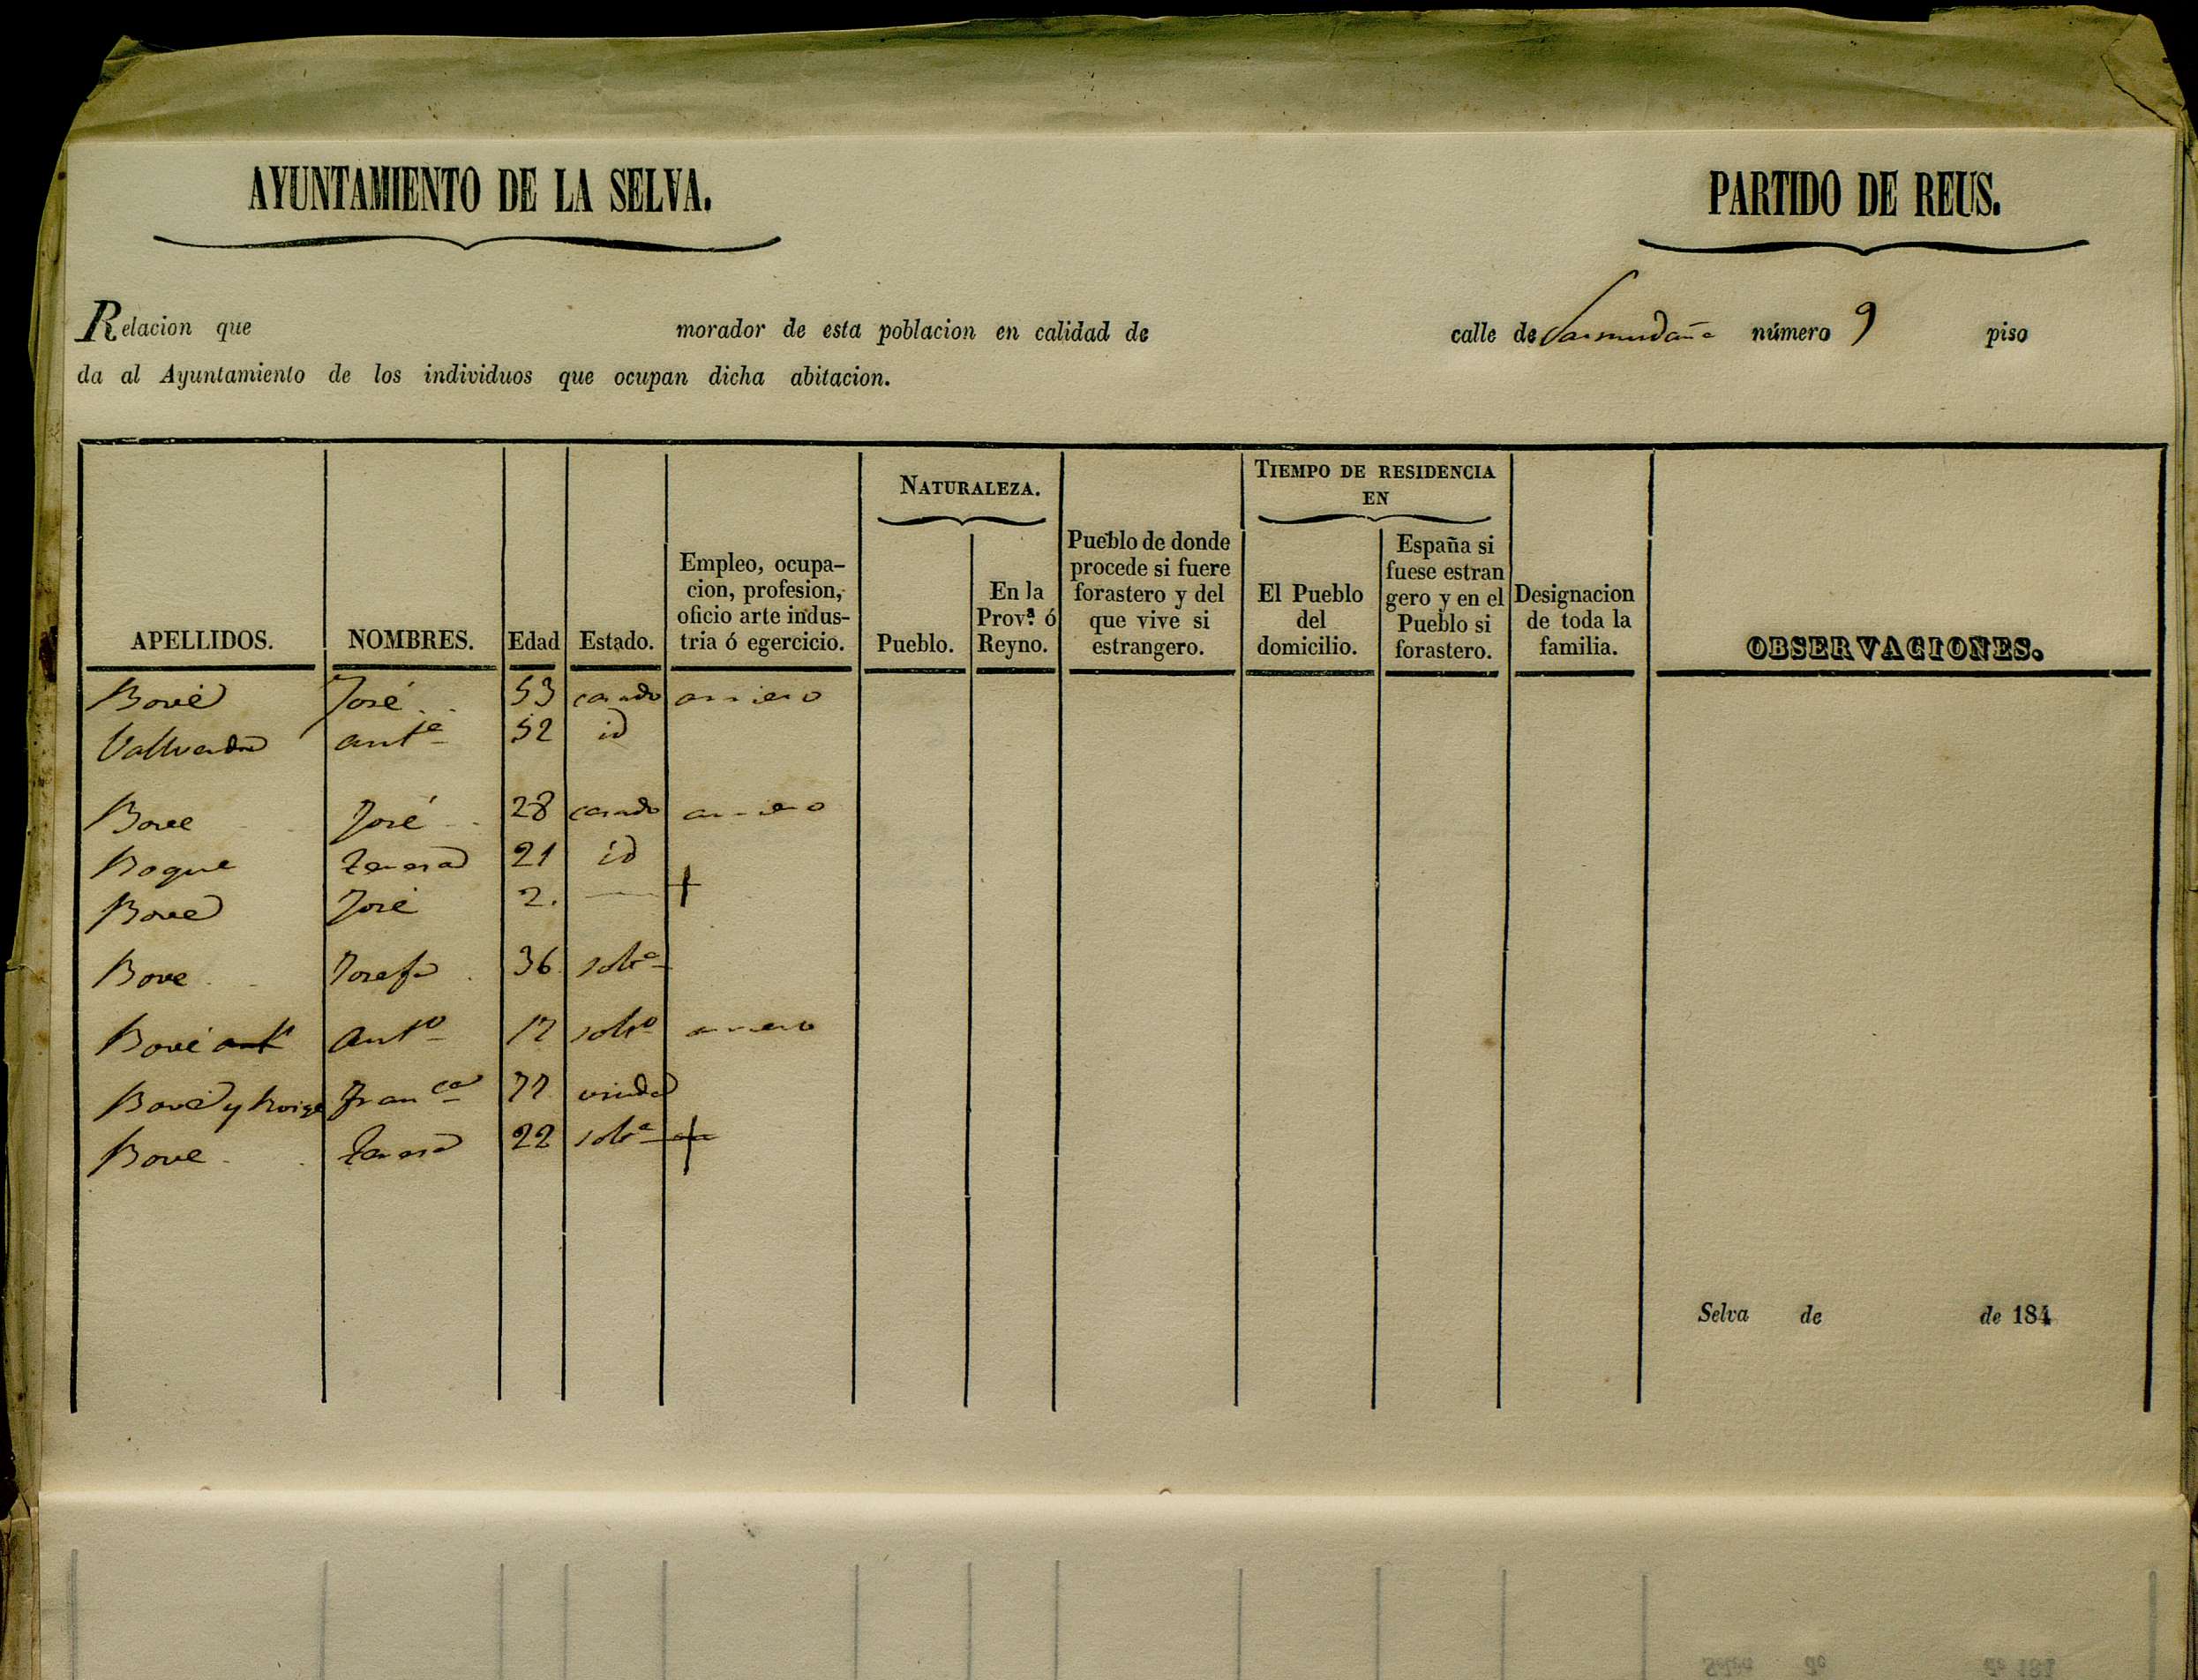 AYUNTAMIENTO DE LA SELVA. PARTIDO DE REUS.
Relacion que morador de esta poblacion en calidad de calle de número 9 piso
da al Ayuntamiento de los individuos que ocupan dicha abitacion.
NATURALEZA. TIEMPO DE RESIDENCIA EN
APELLIDOS. NOMBRES. Edad Estado. Empleo, ocupa-cion, profesion, oficio arte indus-tria ó egercicio. Pueblo. En la Prov.ª ó Reyno. Pueblo de donde procede si fuere forastero y del que vive si estrangero. El Pueblo del domicilio. España si fuese estran gero y en el Pueblo si forastero. Designacion de toda la familia. OBSERVACIONES.
Bové José 53 casado arriero
Vallverdu antª 52 id
Bove José 28 casado arriero
Boque Teresa 21 id
Bove José 2. — +
Bove Josefa 36 soltª
Bové antº Antº 17 soltº arriero
Bové y Franca 77 viuda
Bove Teresa 22 soltª +
Selva de de 184